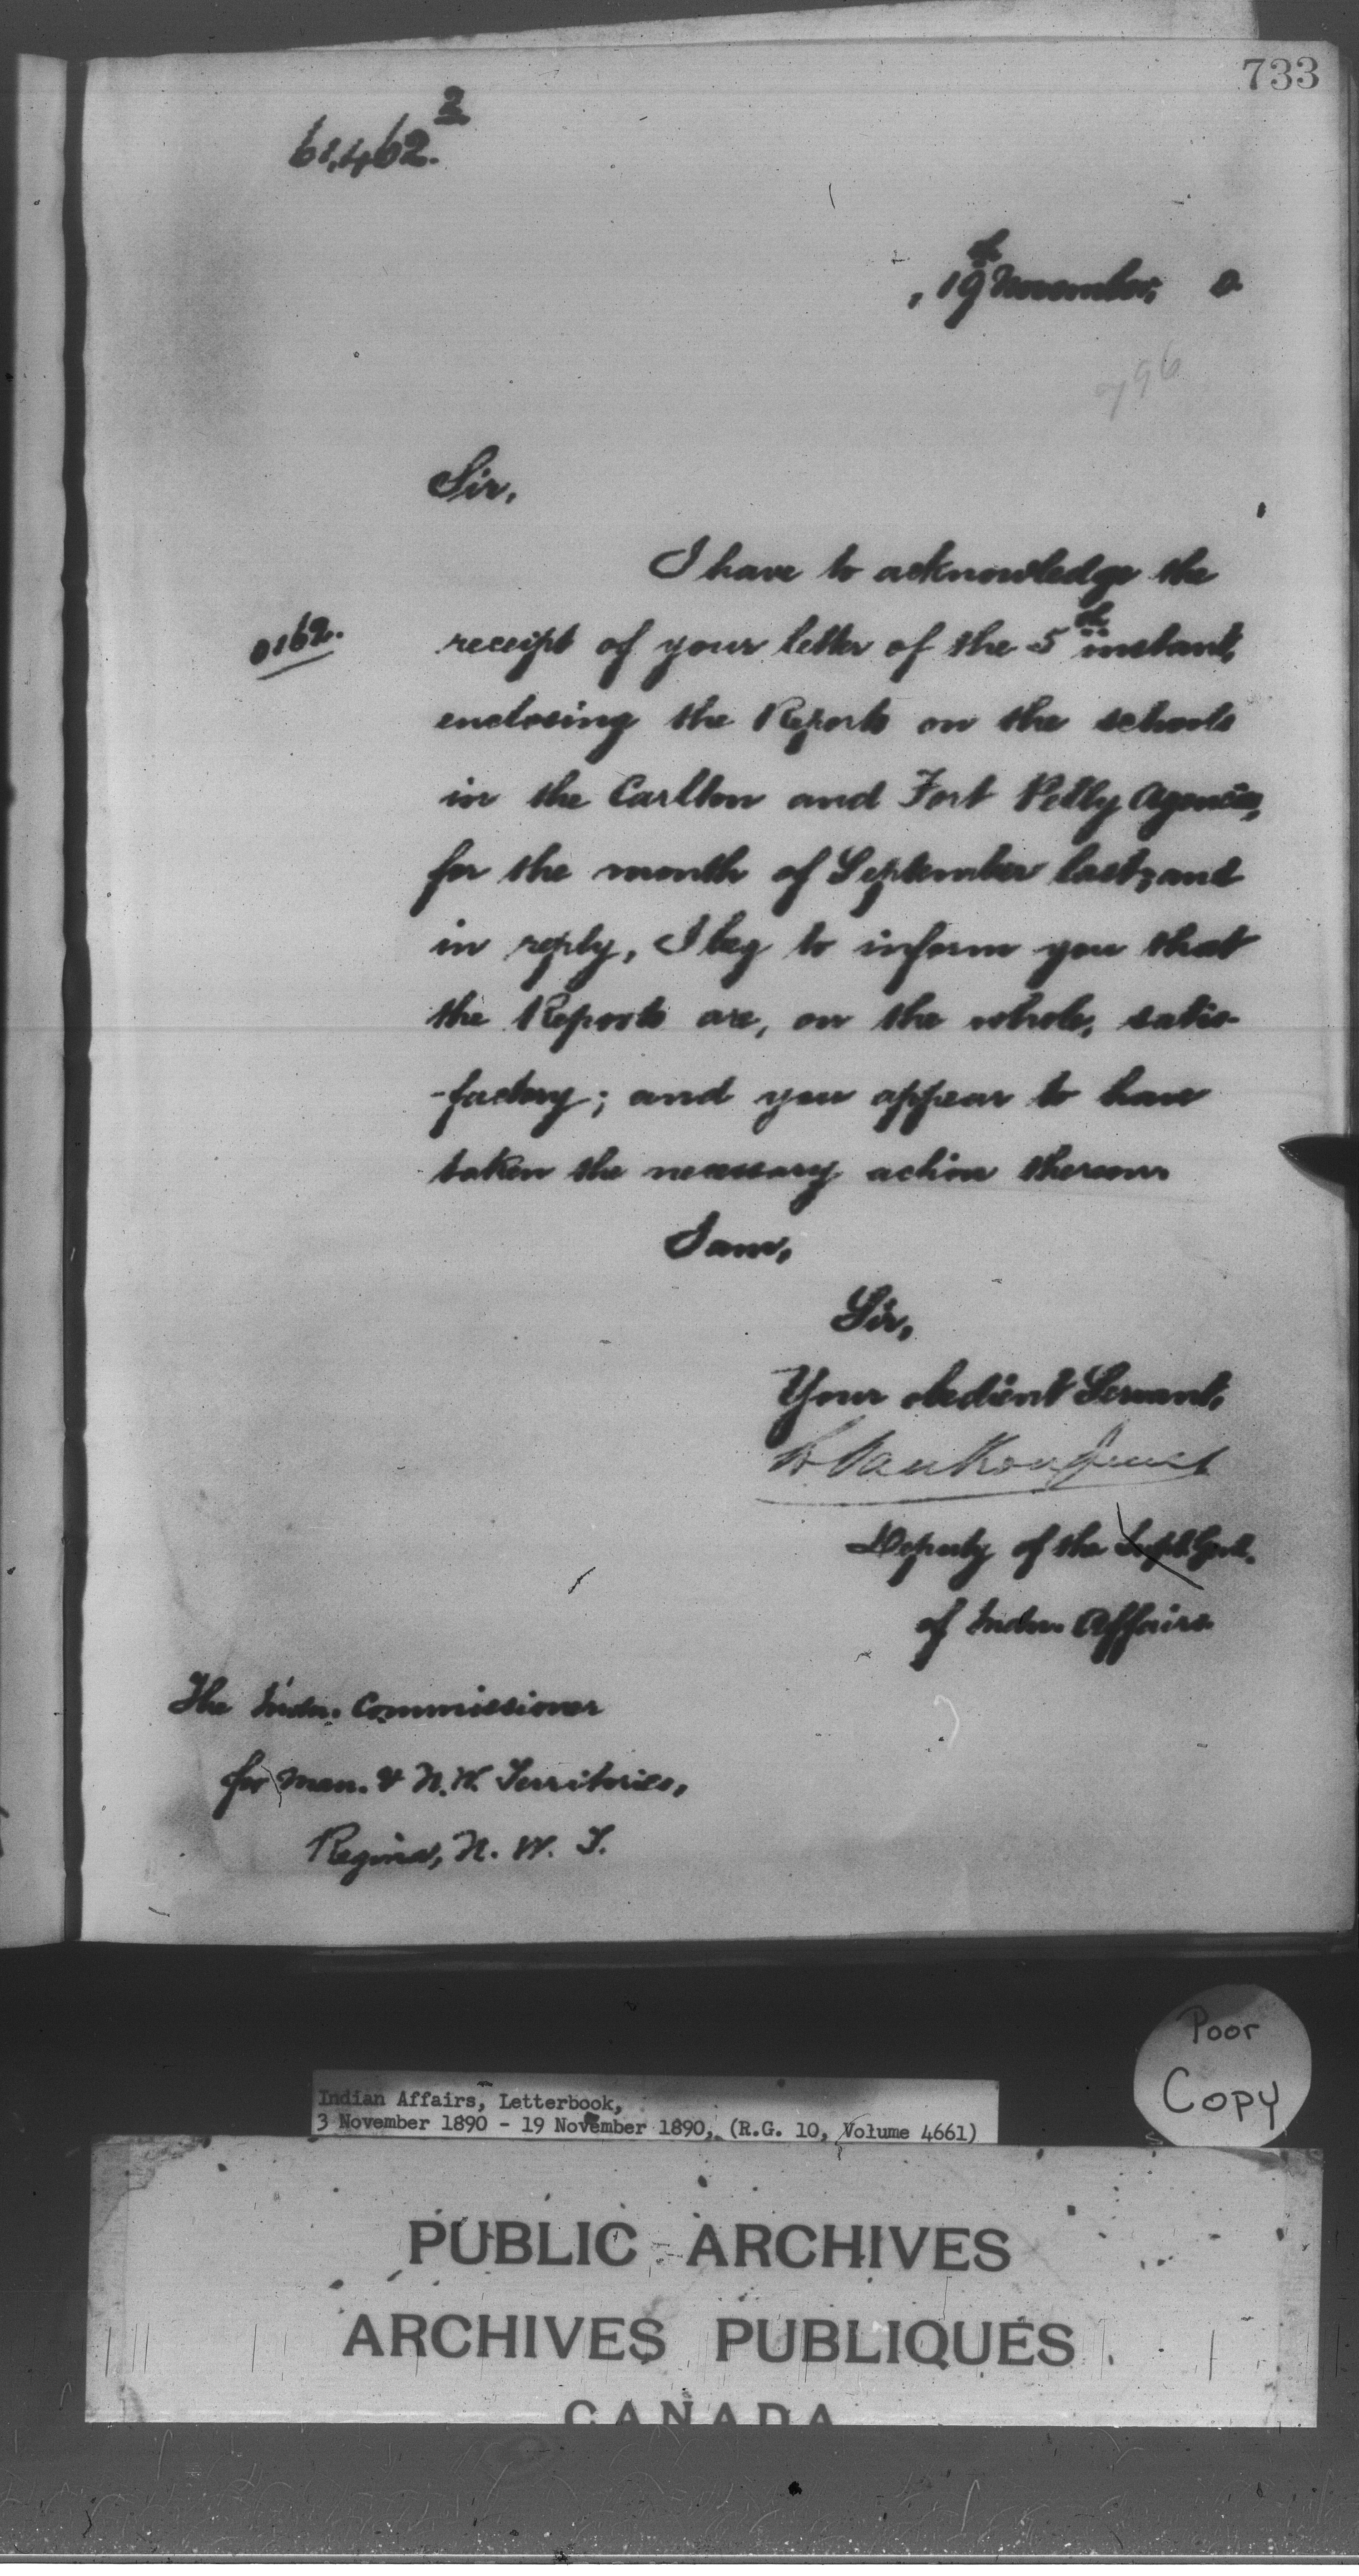 733
61,462.2
, 19th November, 0
796
Sir,
I have to acknowledge the
0162.
receipt of your letter of the 5th instant,
enclosing the Reports on the schools
in the Carlton and Fort Pelly Agencies,
for the month of September last; and
in reply, I beg to inform you that
the Reports are, on the whole, satis-
-factory; and you appear to have
taken the necessary action thereon.
I am,
Sir,
Your obedient Servant,
L. Vankoughnet
Deputy of the Supt. Genl.
of Indn. Affairs.
The Indn. Commissioner
for Man. & N.W. Territories,
Regina, N. W. T.
Poor
Copy
Indian Affairs, Letterbook,
3 November 1890 - 19 November 1890, (R.G. 10, Volume 4661)
PUBLIC ARCHIVES
ARCHIVES PUBLIQUES
CANADA